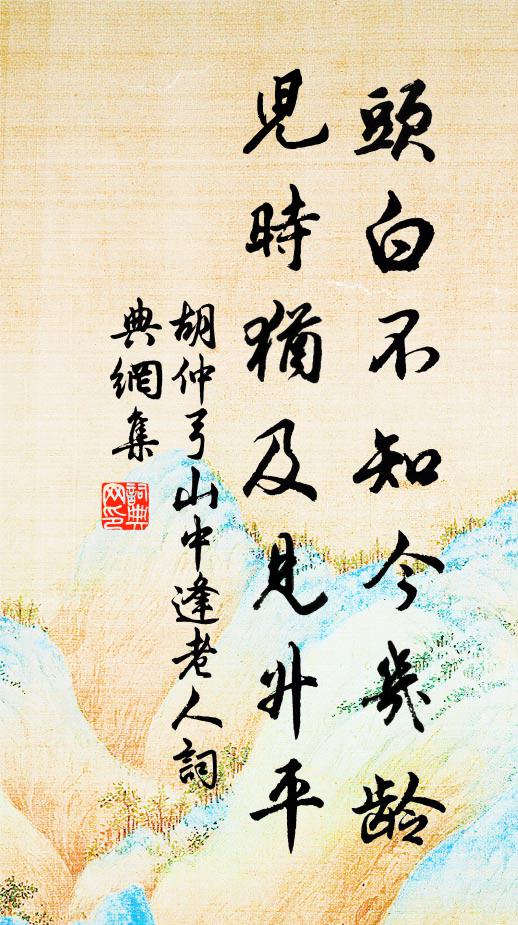 頭白不知今幾齡
児時猶及見升平
胡仲弓山中逢老人詞
典網集
詞典
网印